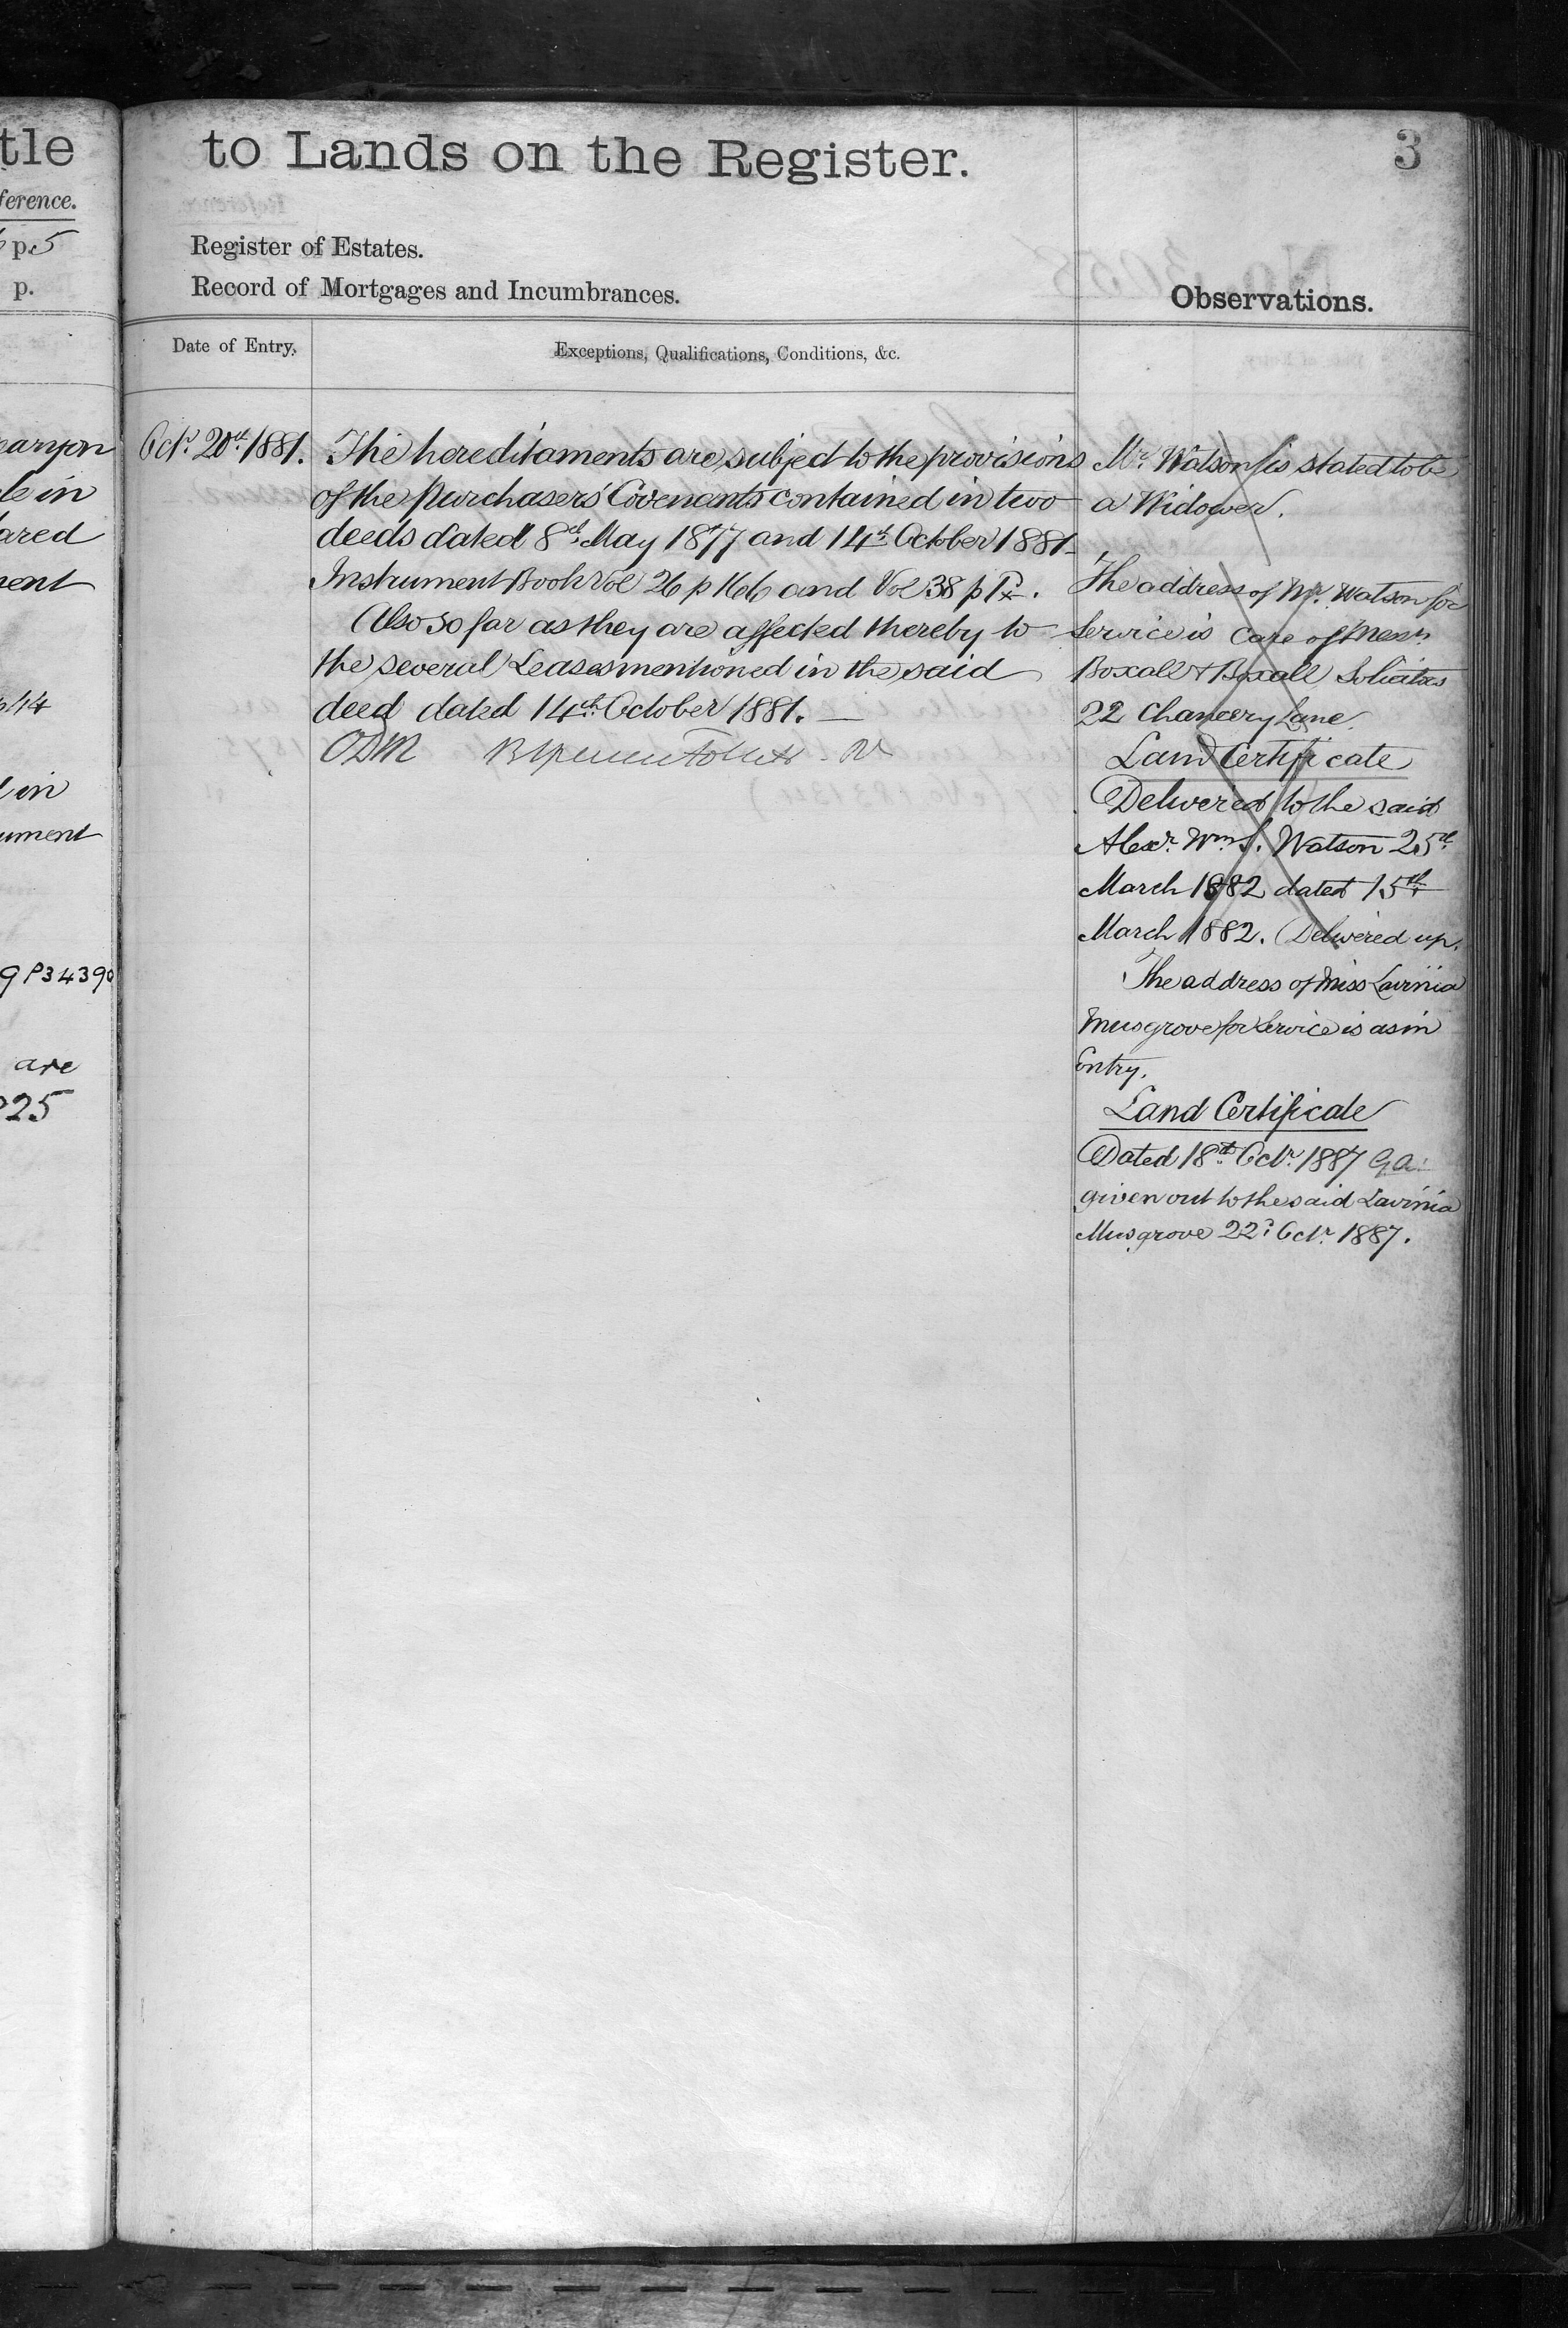 tle
ference.
p. 5
p.
are
to Lands on the Register.
3
Register of Estates.
Record of Mortgages and Incumbrances.
Observations.
Date of Entry.
Exceptions, Qualifications, Conditions, &c.
Octr. 20th 1881.
The hereditaments are subject to the provisions
of the Purchasers' Covenants contained in two
deeds dated 8th May 1877 and 14th October 1881
Instrument Book Vol 26 p 166 and Vol 38 p
Also so far as they are affected thereby to
the several Leases mentioned in the said
deed dated 14th October 1881. —
ODM
Mr. Watson is stated to be
a Widower.
The address of Mr. Watson for
Service is Care of Messrs
Boxall & Boxall Solicitors
22 Chancery Lane.
Land Certificate
Delivered to the said
Alexr. Wm. S. Watson 25th
March 1882 dated 15th
March 1882. Delivered up.
The address of Miss Lavinia
Musgrove for Service is as in
Entry.
Land Certificate
Dated 18th Octr. 1887
given out to the said Lavinia
Musgrove 22d Octr. 1887.